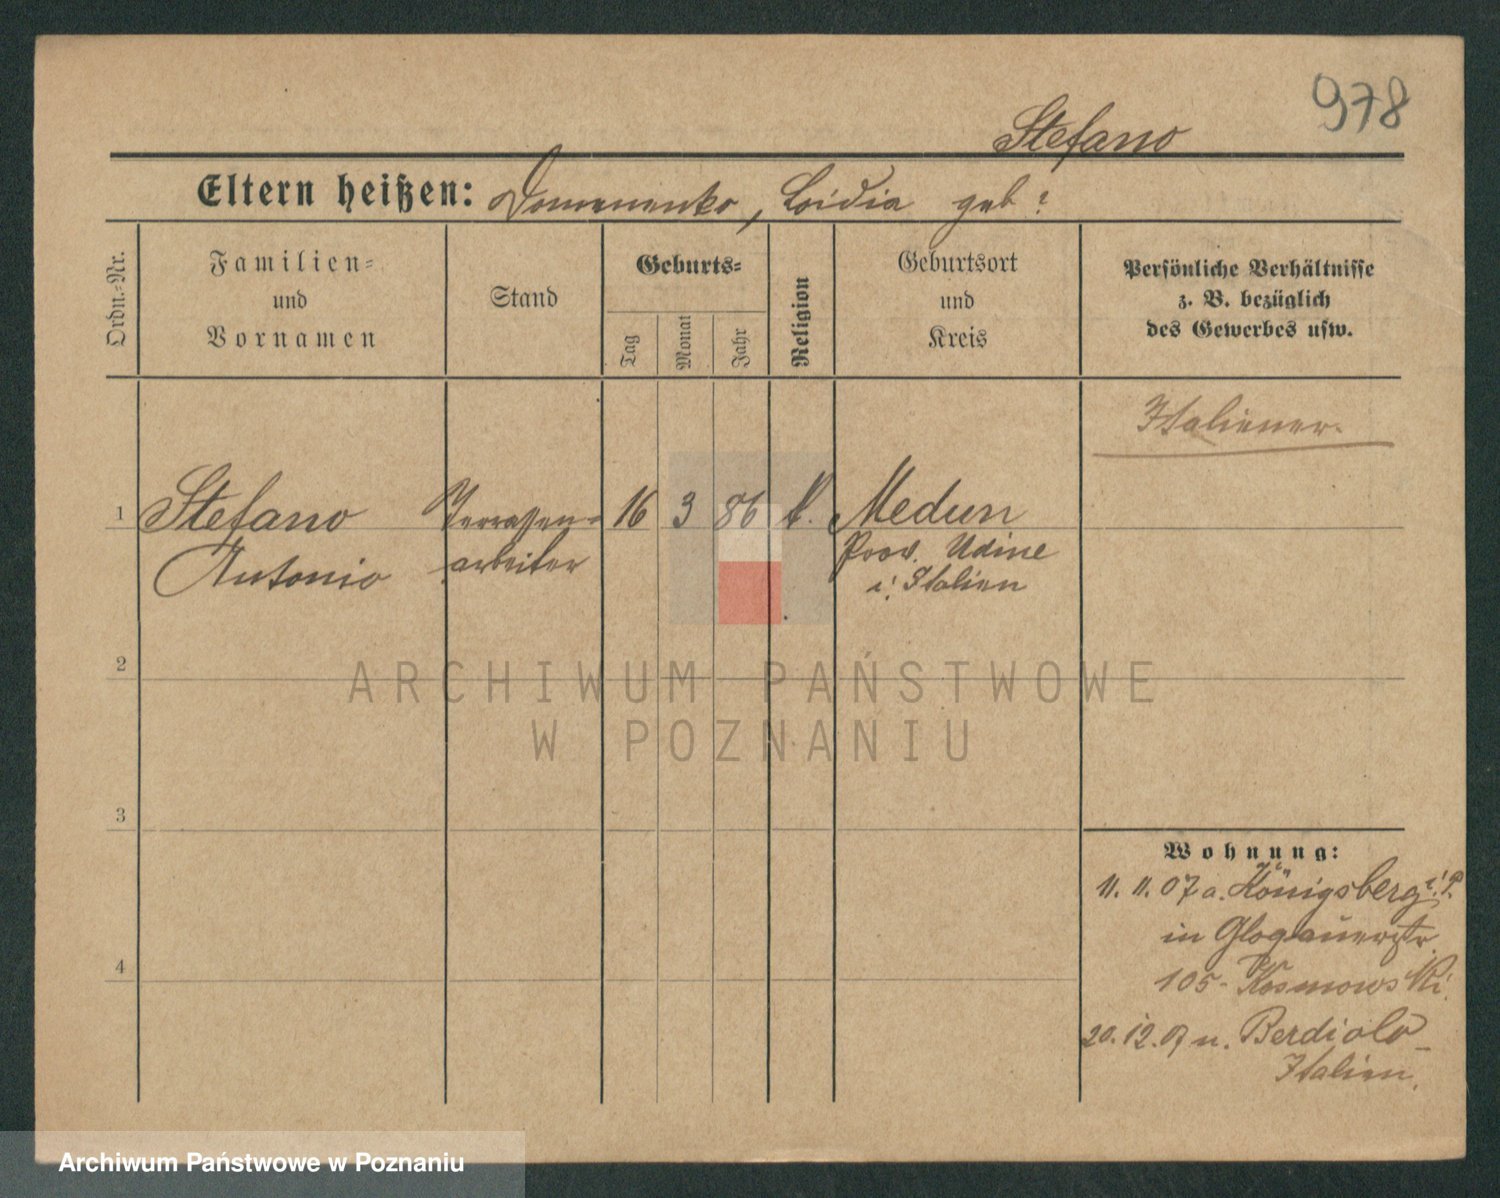 978
Stefano
Eltern heißen: Domenenko, Loidia geb?
Ordn.-Nr.
Familien-
und
Vornamen
Stand
Geburts-
Tag
Monat
Jahr
Religion
Geburtsort
und
Kreis
Persönliche Verhältnisse
z. B. bezüglich
des Gewerbes usw.
Italiener.
1 Stefano Terrassen- 16 3 86 k. Medun
Antonio arbeiter Prov. Udine
i. Italien
2
3
4
Wohnung:
11. 11. 07 a. Königsberg i. P.
in Glogauerstr.
105 - Kosmowski.
20. 12. 07 n. Berdiolo
Italien.
ARCHIWUM PAŃSTWOWE
W POZNANIU
Archiwum Państwowe w Poznaniu